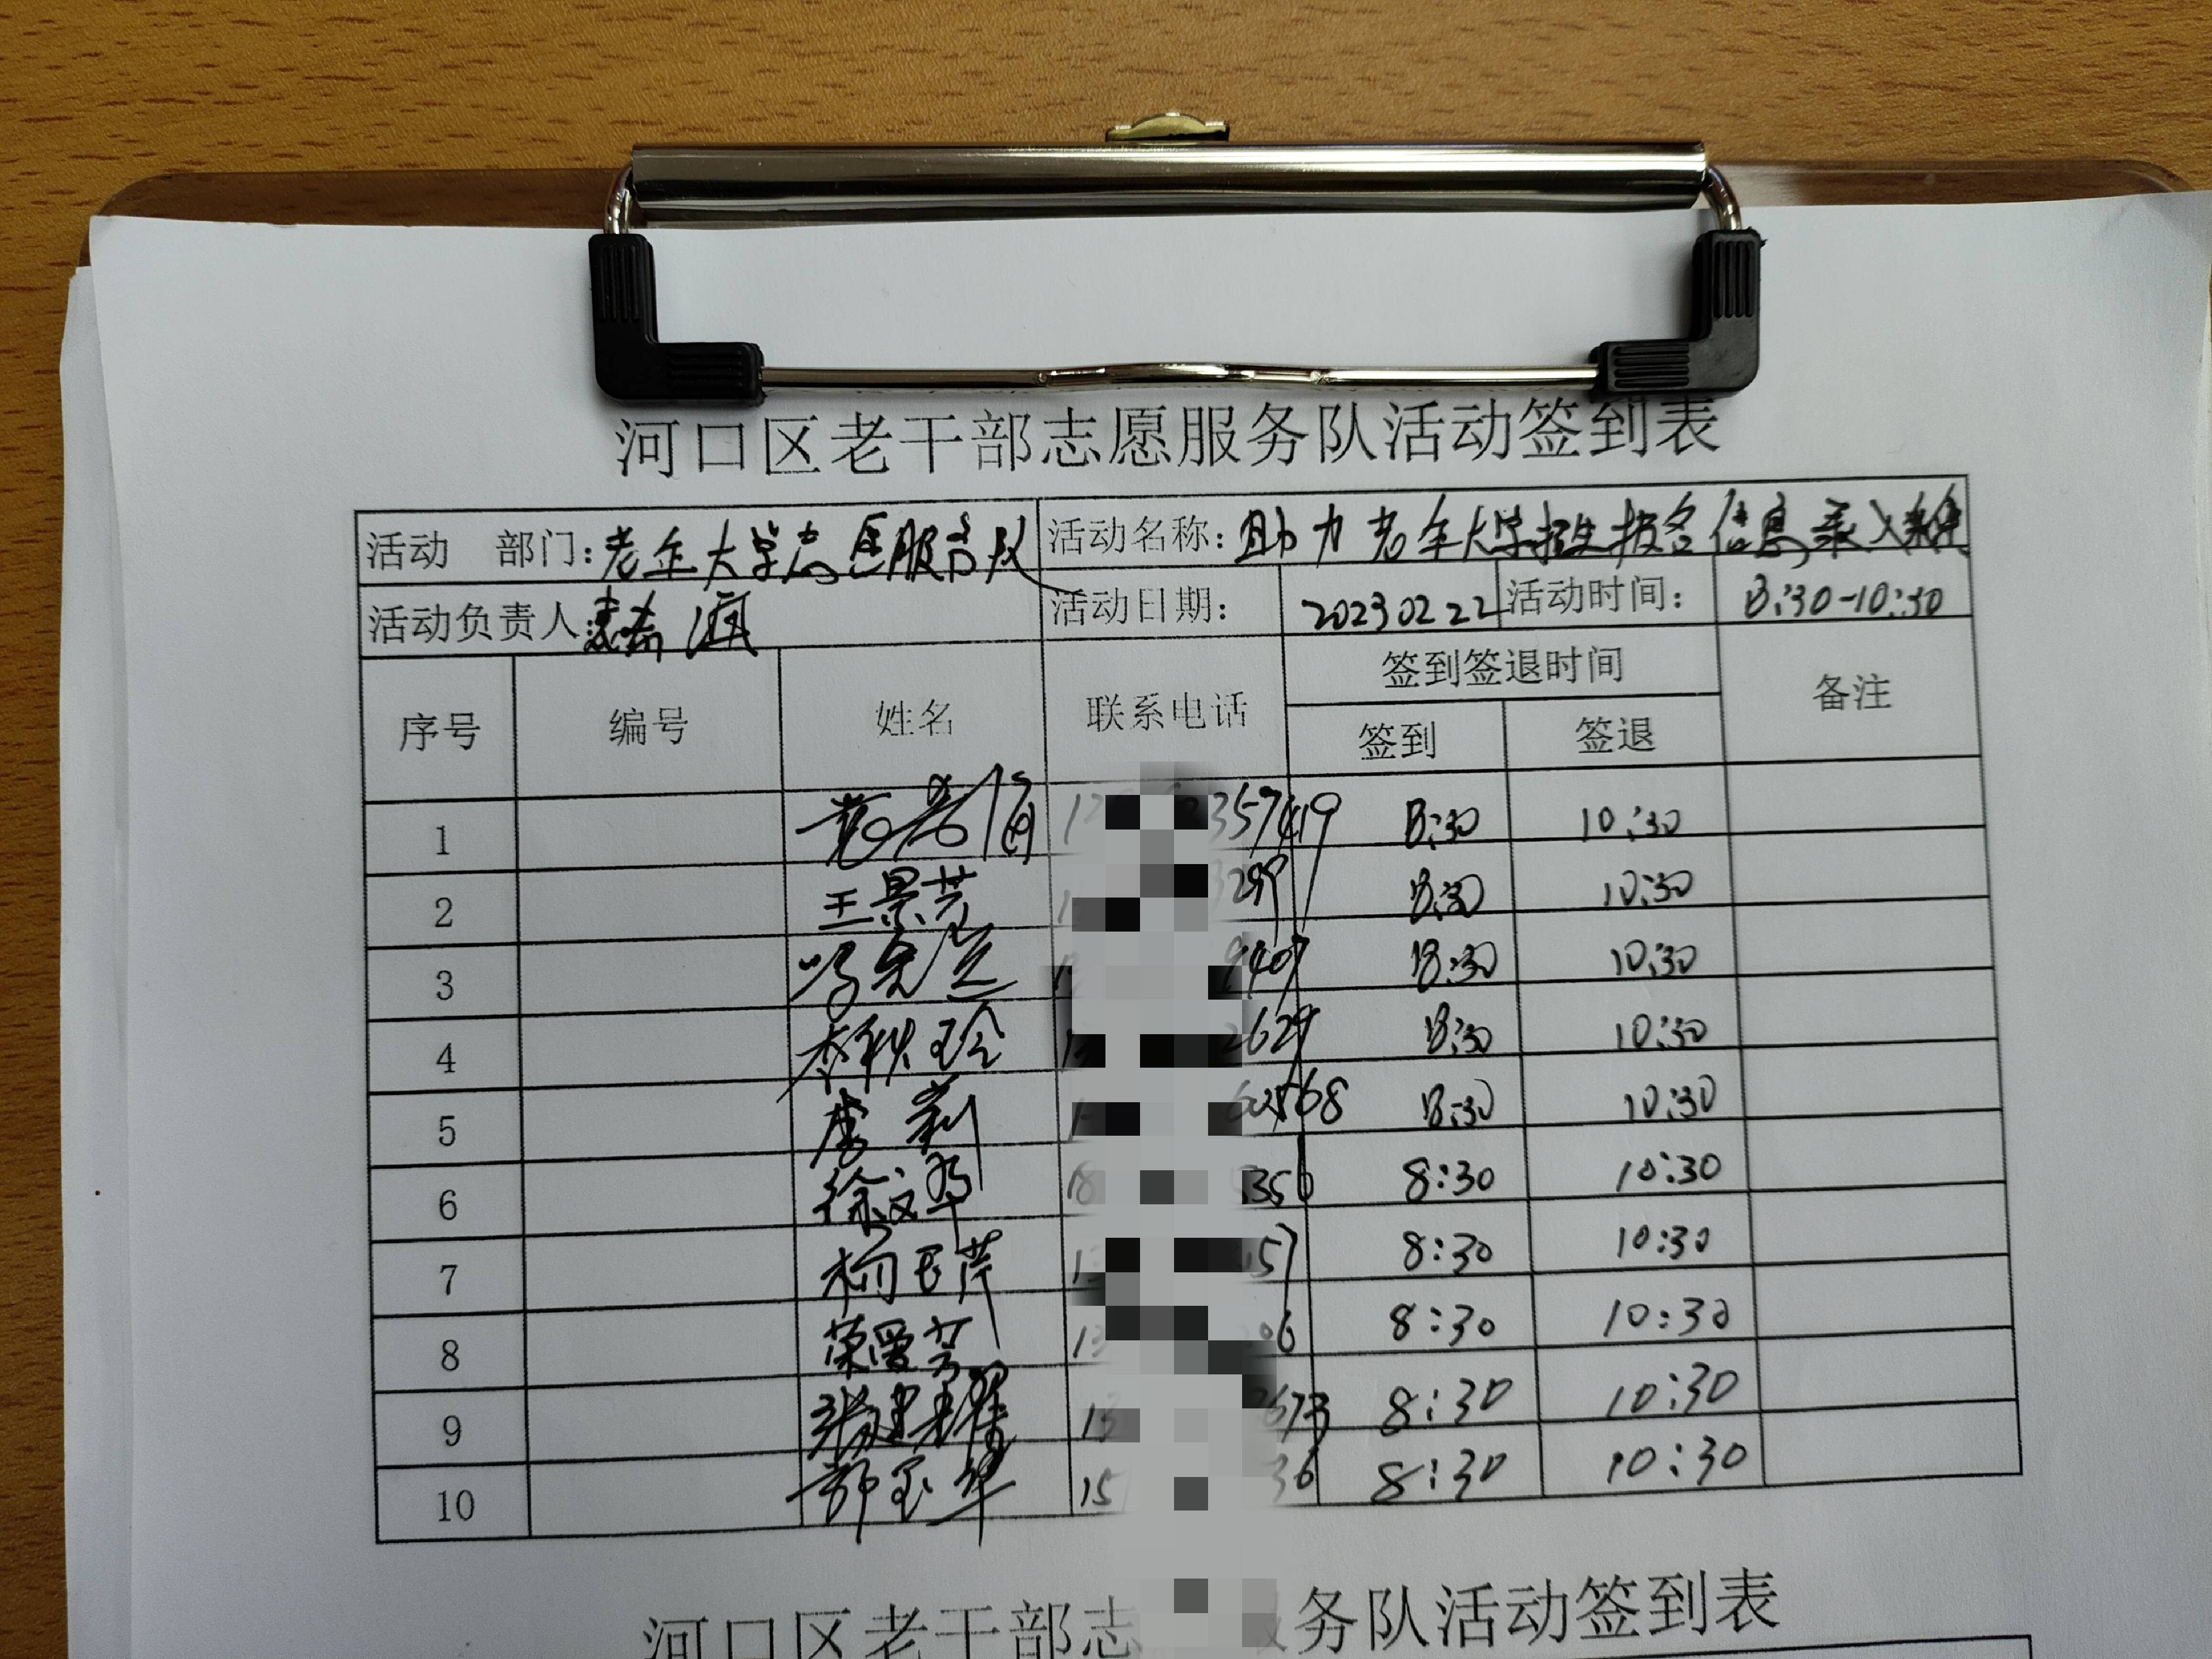 河口区老干部志愿服务队活动签到表
活动 部门：老年大学志愿服务队 活动名称：助力老年大学招生报名信息录入
活动负责人： 活动日期： 20230222 活动时间： 8:30-10:30
序号 编号 姓名 联系电话 签到签退时间 备注
签到 签退
1 8:30 10:30
2 王景芳 8:30 10:30
3 冯 8:30 10:30
4 李秋玲 2629 8:30 10:30
5 李莉 8:30 10:30
6 徐文华 8:30 10:30
7 杨 芹 8:30 10:30
8 荣爱芳 8:30 10:30
9 张建耀 8:30 10:30
10 郭宝华 8:30 10:30
河口区老干部志 务队活动签到表